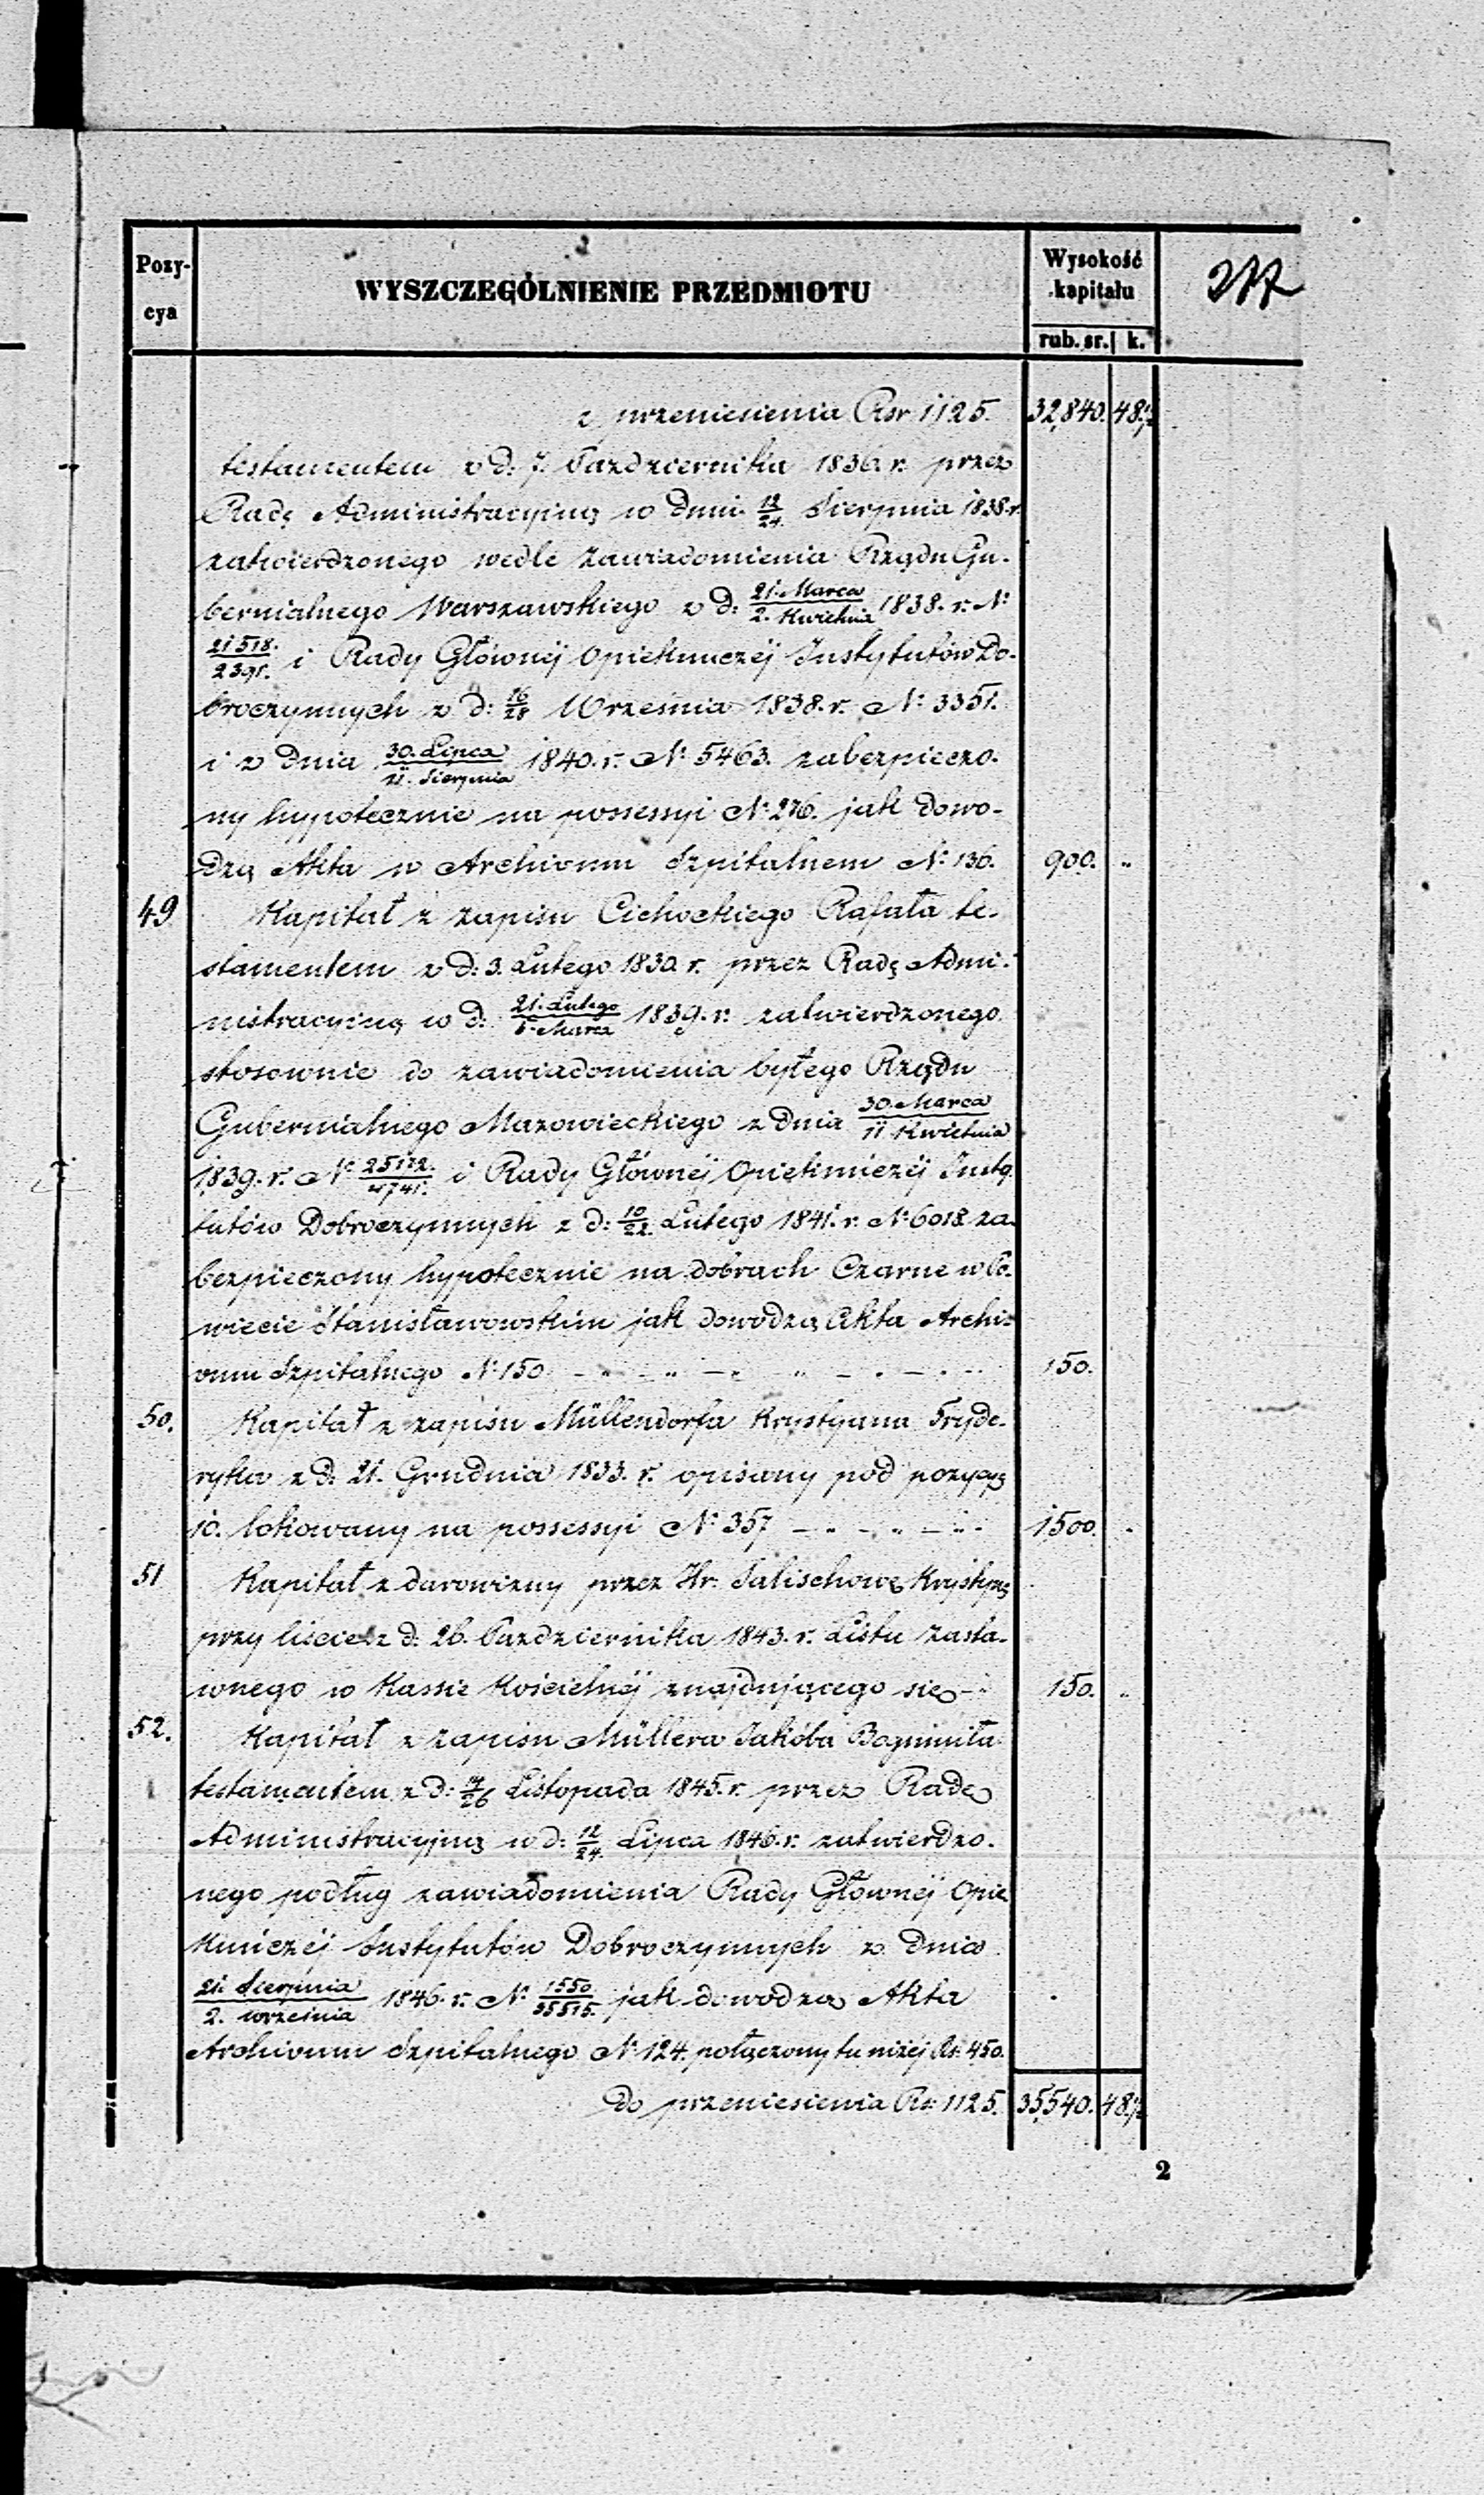 Pozy-
cya
WYSZCZEGÓLNIENIE PRZEDMIOTU
Wysokość
kapitału
rub. sr. k.
277
z przeniesienia Rsr 1125. 32,840. 48½
testamentem z d: 7. Października 1836. r. przez
Radę Administracyjną w dniu 12/24. Sierpnia 1838. r.
zatwierdzonego wedle zawiadomienia Rządu Gu-
bernialnego Warszawskiego z d: 21. Marca/2. Kwietnia 1838. r. N:
21518./2391. i Rady Głównéj Opiekuńczéj Instytutów Do-
broczynnych z d: 16/28 Września 1838. r. N: 3351.
i z dnia 30. Lipca/11. Sierpnia 1840. r. N: 5463. zabezpieczo-
ny hypotecznie na possessyi N: 276. jak dowo-
dzą Akta w Archivum Szpitalnem N: 136. 900. „
49 Kapitał z zapisu Cichockiego Rafała te-
stamentem z d: 3. Lutego 1830 r. przez Radę Admi-
nistracyjną w d: 21. Lutego/5. Marca 1839. r. zatwierdzonego
stosownie do zawiadomienia byłego Rządu
Gubernialnego Mazowieckiego z dnia 30. Marca/11 Kwietnia
1839. r. N: 25172./4741. i Rady Głównéj Opiekuńczéj Insty-
tutów Dobroczynnych z d: 10/22. Lutego 1841. r. N: 6018. za-
bezpieczony hypotecznie na dobrach Czarne w Po-
wiecie Stanisławowskim jak dowodzą Akta Archi-
vum Szpitalnego N: 150 - „ - „ - „ - „ - 150.
50. Kapitał z zapisu Müllendorfa Krystyana Fryde-
ryka z d: 21. Grudnia 1833. r. opisany pod pozycyą
10. lokowany na possessyi N: 357 - „ - „ - „ - 1500. „
51 Kapitał z darowizny przez Hr. Salischowę Krystynę
przy liście z d: 26. Października 1843. r. Listu Zasta-
wnego w Kassie Kościelnéj znajdującego się - 150. „
52. Kapitał z zapisu Müllera Jakóba Bogumiła
testamentem z d: 14/26 Listopada 1845. r. przez Radę
Administracyjną w d: 12/24. Lipca 1846. r. zatwierdzo-
nego podług zawiadomienia Rady Głównéj Opie-
kuńczéj Instytutów Dobroczynnych z dnia
21. Sierpnia/2. Września 1846. r. N: 1550/35515. jak dowodzą Akta
Archivum Szpitalnego N: 124. połączony tu niżéj Rs. 450.
do przeniesienia Rs. 1125. 35,540. 48½
2